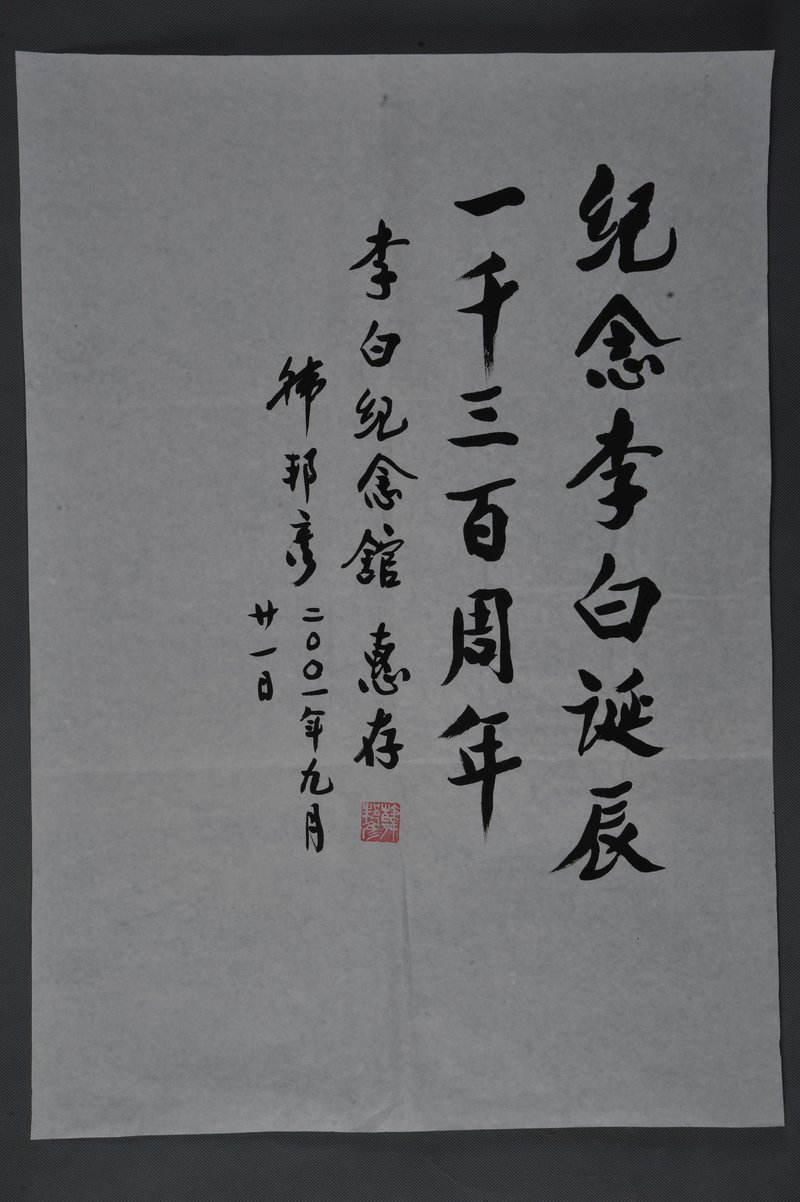 纪念李白诞辰
一千三百周年
李白纪念館 惠存
韩邦彦
二〇〇一年九月
廿一日